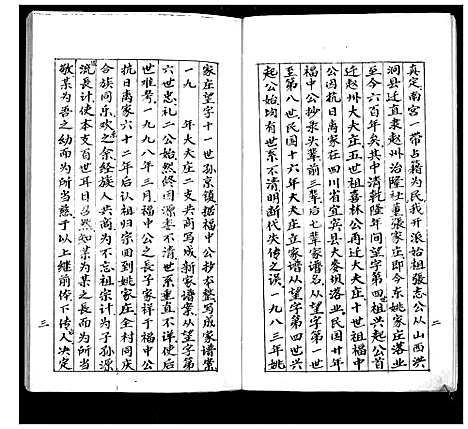 真定南宫一带占籍为民我开派始祖张志公从山西洪
洞县迁直隶赵州治隆社董张家庄即今东姚家庄落业
至今六百年矣其中清乾隆年间望字第四祖兴起公首
迁赵州大夫庄五世祖喜林公再迁大夫庄十世祖福中
公因抗日离家在四川省宜宾县大麥坝落业民国廿年
福中公抄录头辈前三辈后七辈家谱名从望字第一世
至第八世民国十六年大夫庄立家谱从望字第四世兴
起公始均有世系不清明断代失传之误一九八三年姚
家庄望字十一世孙京镇据福中公抄本整写成家谱案
一九 年大夫庄二支共商写成新家谱案从望字第
六世忠礼二公始然终因源委不清世系重直不详使后
世难号一九九八年三月福中公之長子家祥于福中公
抗日离家六十二年后认祖归宗回到姚家庄全村同庆
合族同乐欢之余经族人共商为不忘祖宗计为子孙源
流長计使本支百世耳日 然知某为之長而为所当
敬某为吾之幼而为所当慈于以上继前俾下传人决定
二
三